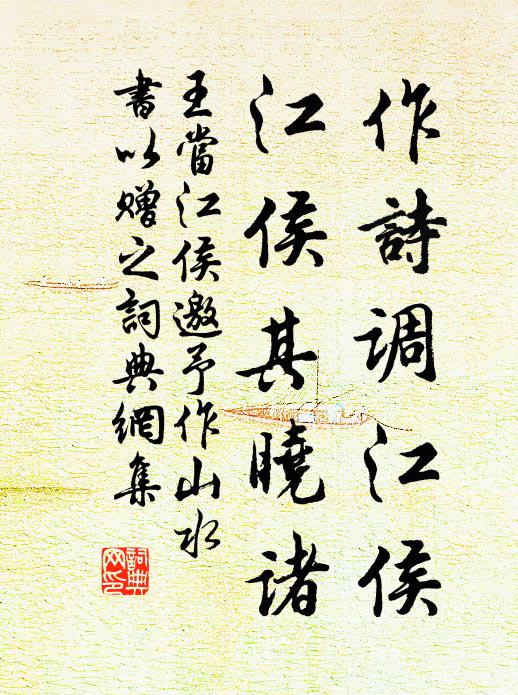 作詩調江侯
江侯其曉諸
王當江侯邀予作山水
書以贈之詞典網集
詞典網印